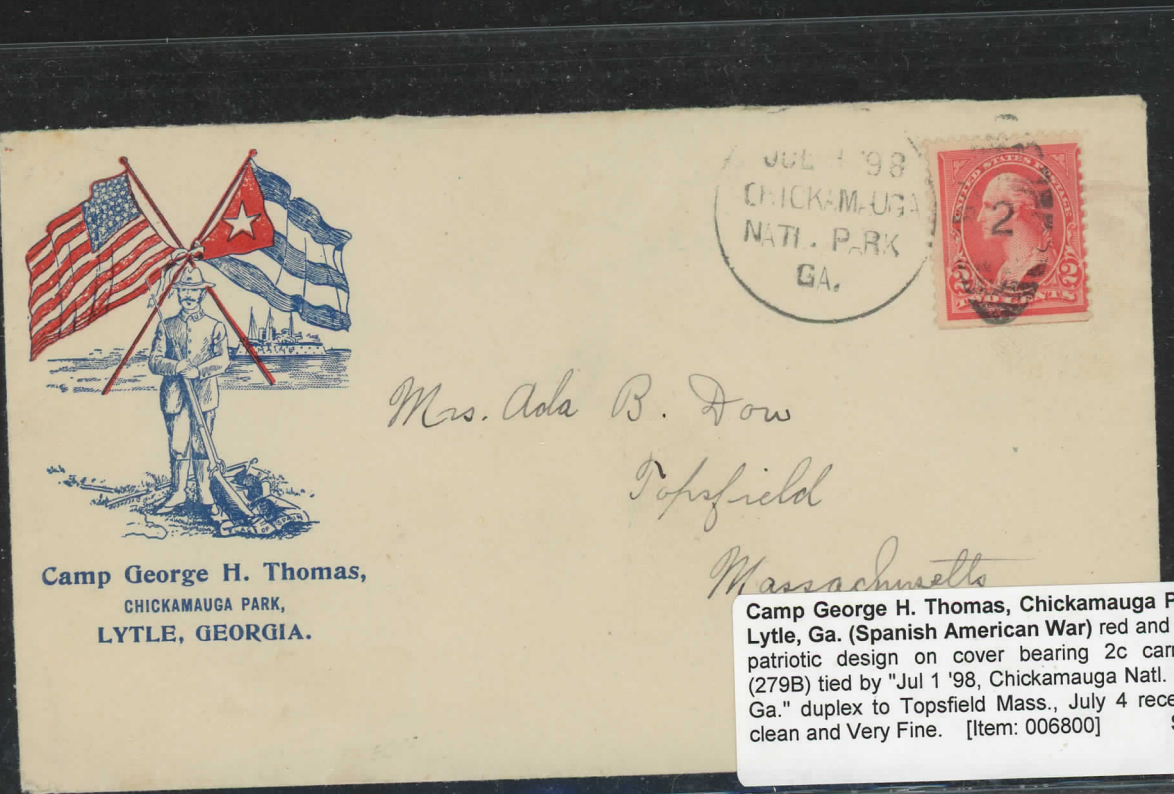 JUL 1 '98
CHICKAMAUGA
NATL. PARK
GA.
UNITED STATES POSTAGE
2
2 2
TWO CENTS
Mrs. Ada B. Dow
Topsfield
Massachusetts
FLAG OF SPAIN
Camp George H. Thomas,
CHICKAMAUGA PARK,
LYTLE, GEORGIA.
Camp George H. Thomas, Chickamauga P
Lytle, Ga. (Spanish American War) red and
patriotic design on cover bearing 2c car
(279B) tied by "Jul 1 '98, Chickamauga Natl.
Ga." duplex to Topsfield Mass., July 4 rece
clean and Very Fine. [Item: 006800]